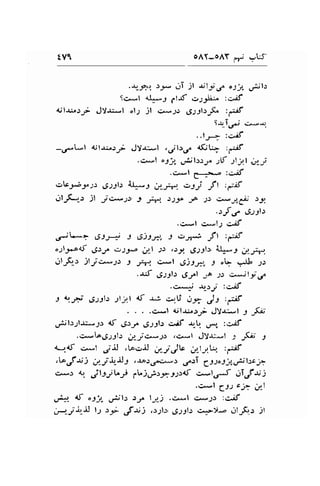 کتاب نهم ۵۸۳ــ۵۸۲ ۴۷۹
دانش پژوه می‌تواند از آن سود بجوید.
گفت: منظورت کدام وسیله است؟
گفتم: مگرداوری درست از راه استدلال خردمندانه
بدست نمی‌آید؟
گفت: چـــرا..
گفتم: چنانکه می‌دانی، استدلال خردمندانه اساسی‌ــ
ترین ابزار کار مرددانش پژوه است.
گفت: صحیــح است.
گفتم: اگر ثروت بهترین وسیلهٔ داوری درموضوعات
بود نفع‌پرست در هر مورد بهتر و درست‌تر از دیگران
داوری می‌کرد.
گفت راست است.
گفتم: اگر شهرت و پیروزی و نیــروی جسمانــی
بهترین وسیلهٔ داوری بود، در این صورت مردی که‌همواره
در طلب جاه و پیروزی است بهتر و درست‌تراز دیگران
می‌توانست در هر امری داوری کند.
گفت: تردید نیست.
گفتم: ولی چون ثابت شد که ابزار داوری تجربه و
تفکر و استدلال خردمندانه است. . . .
گفت: پس باید گفت داوری مردی که دوستدار‌دانش
و تفکر و استدلال است، درست‌ترین داوری‌هاست.
گفتم: بنابراین عالی‌ترین لذت‌ها، لذتی است که‌بــه
جزءدانش‌پژوه‌روح آدمی دست‌می‌دهد، ولذیذترین زندگی‌ها،
زندگی‌آن کسی‌است که‌دروجودش‌زمام فرمانروائی به دست
این جزء روح است.
گفت: درست است. زیرا مرد دانش پژوه که بیش
از دیگران صلاحیت داوری دارد، زندگی خود را لذیذتریــن